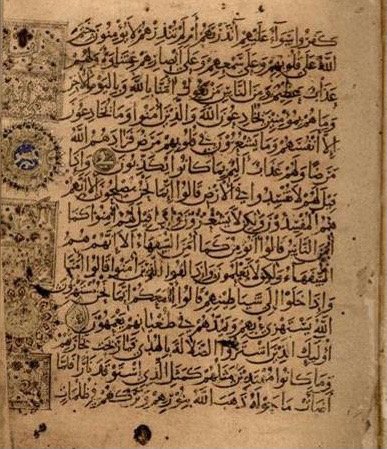 كفروا سواء عليهم أنذرتهم أم لم تنذرهم لا يؤمنون ختم
الله على قلوبهم وعلى سمعهم وعلى أبصارهم غشاوة ولهم
عذاب عظيم ومن الناس من يقول آمنا بالله وباليوم الآخر
وما هم بمؤمنين يخادعون الله والذين آمنوا وما يخادعون
إلا أنفسهم وما يشعرون في قلوبهم مرض فزادهم الله
مرضا ولهم عذاب أليم بما كانوا يكذبون وإذا
قيل لهم لا تفسدوا في الأرض قالوا إنما نحن مصلحون ألا إنهم
هم المفسدون ولكن لا يشعرون وإذا قيل لهم آمنوا كما
آمن الناس قالوا أنؤمن كما آمن السفهاء ألا إنهم هم
السفهاء ولكن لا يعلمون وإذا لقوا الذين آمنوا قالوا آمنا
وإذا خلوا إلى شياطينهم قالوا إنا معكم إنما نحن مستهزئون
الله يستهزئ بهم ويمدهم في طغيانهم يعمهون
أولئك الذين اشتروا الضلالة بالهدى فما ربحت تجارتهم
وما كانوا مهتدين مثلهم كمثل الذي استوقد نارا فلما
أضاءت ما حوله ذهب الله بنورهم وتركهم في ظلمات